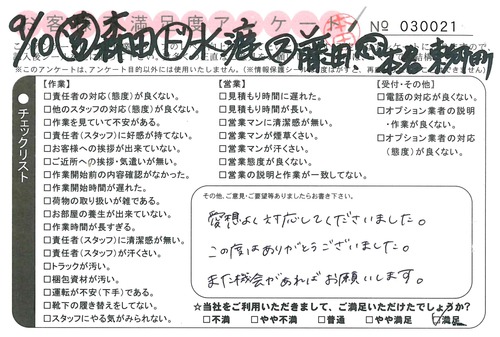 お客様満足度アンケート
№ 030021
9/10 営 森田 ド 水渡 ス 藤田
※このアンケートは、アンケート目的以外には使用いたしません。
チェックリスト
【作業】
□責任者の対応(態度)が良くない。
□他のスタッフの対応(態度)が良くない。
□作業を見ていて不安がある。
□責任者(スタッフ)に好感が持てない。
□お客様への挨拶が出来ていない。
□ご近所への挨拶・気遣いが無い。
□作業開始前の内容確認がなかった。
□作業開始時間が遅れた。
□荷物の取り扱いが雑である。
□お部屋の養生が出来ていない。
□作業時間が長すぎる。
□責任者(スタッフ)に清潔感が無い。
□責任者(スタッフ)が汗くさい。
□トラックが汚い。
□梱包資材が汚い。
□運転が不安(下手)である。
□靴下の履き替えをしてない。
□スタッフにやる気がみられない。
【営業】
□見積もり時間に遅れた。
□見積もり時間が長い。
□営業マンに清潔感が無い。
□営業マンが煙草くさい。
□営業マンが汗くさい。
□営業態度が良くない。
□営業の説明と作業が一致してない。
【受付・その他】
□電話の対応が良くない。
□オプション業者の説明
・作業が良くない。
□オプション業者の対応
(態度)が良くない。
その他、ご意見・ご要望等ありましたらお書き下さい。
愛想よく対応してくださいました。
この度はありがとうございました。
また機会があればお願いします。
☆当社をご利用いただきまして、ご満足いただけたでしょうか?
□不満 □やや不満 □普通 □やや満足 ☑満足